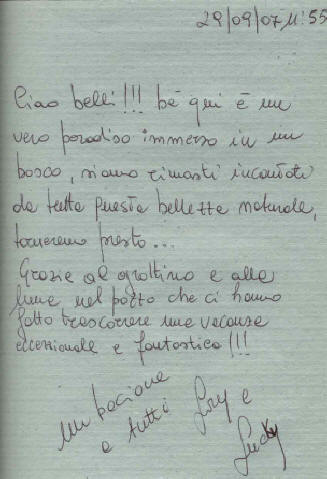 29/09/07 11:55
Ciao belli!!! bè qui è un
vero paradiso immerso in un
bosco, siamo rimasti incantati
da tutta questa bellezza naturale,
torneremo presto...
Grazie al grottino e alla
fune nel pozzo che ci hanno
fatto trascorrere una vacanza
eccezionale e fantastica!!!
un bacione
a tutti e
Lucky